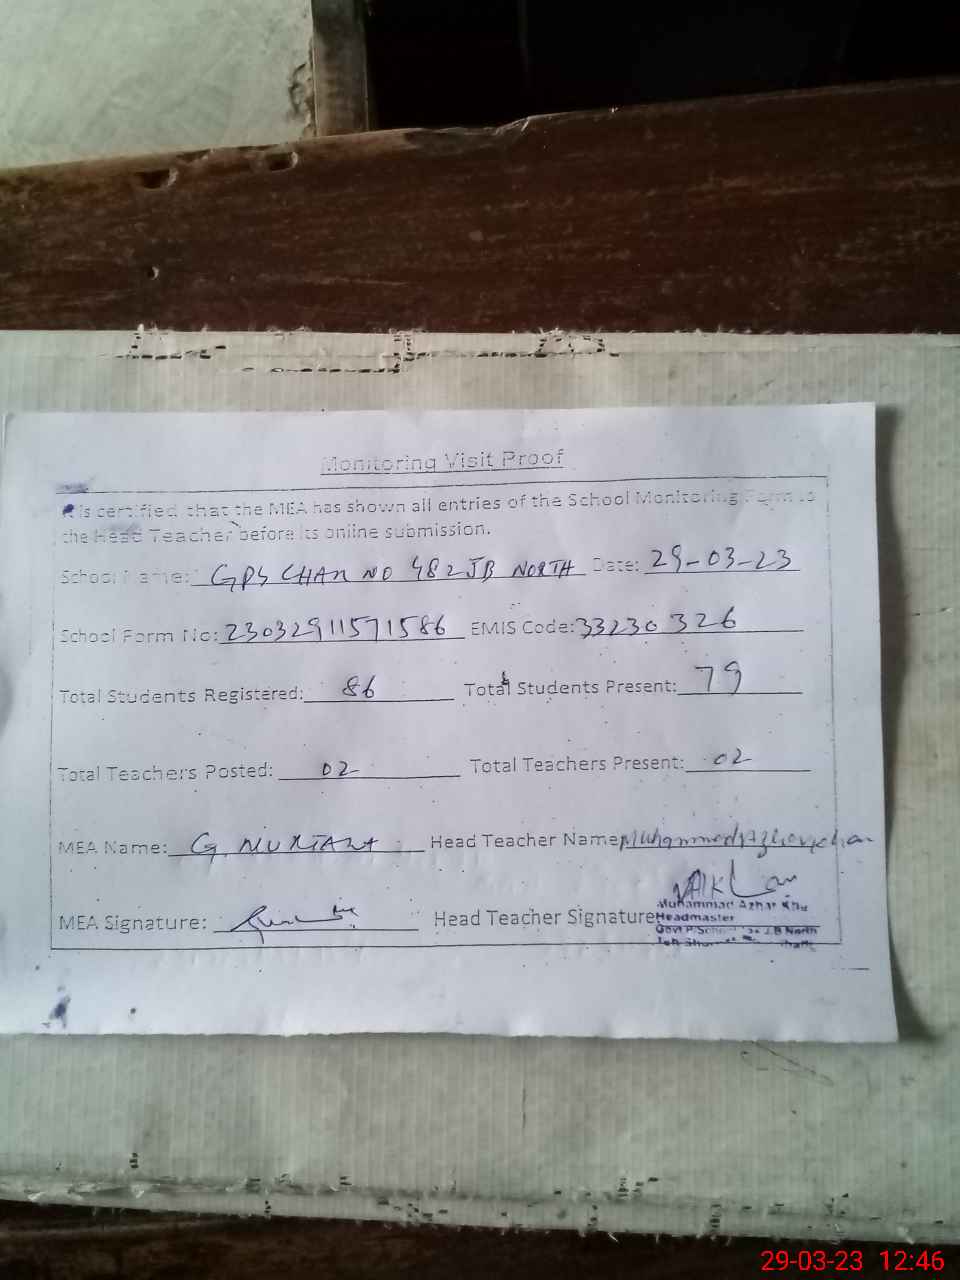 Monitoring Visit Proof
It is certified that the MEA has shown all entries of the School Monitoring Form to
the Head Teacher before its online submission.
School Name: GPS CHAK NO 482 JB NORTH Date: 29-03-23
School Form No: 23032911571586 EMIS Code: 33230326
Total Students Registered: 86 Total Students Present: 79
Total Teachers Posted: 02 Total Teachers Present: 02
MEA Name: G. MUKTAR Head Teacher Name: Muhammad Azhar Khan
MEA Signature: Head Teacher Signature
Muhammad Azhar Khan
Headmaster
Govt P/School JB North
29-03-23 12:46